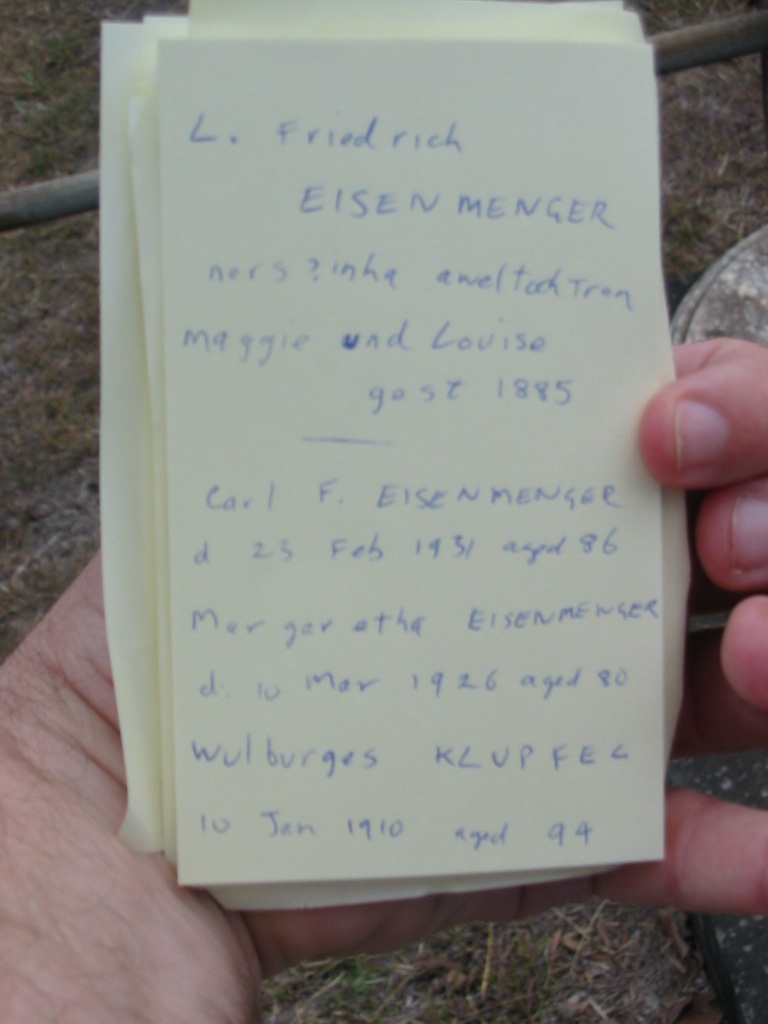 L. Friedrich
EISENMENGER
ners?inha aweltochtran
maggie und Louise
gest 1885
Carl F. EISENMENGER
d 23 Feb 1931 aged 86
Margaretha EISENMENGER
d. 10 Mar 1926 aged 80
Wulburges KLUPFEL
10 Jan 1910 aged 94